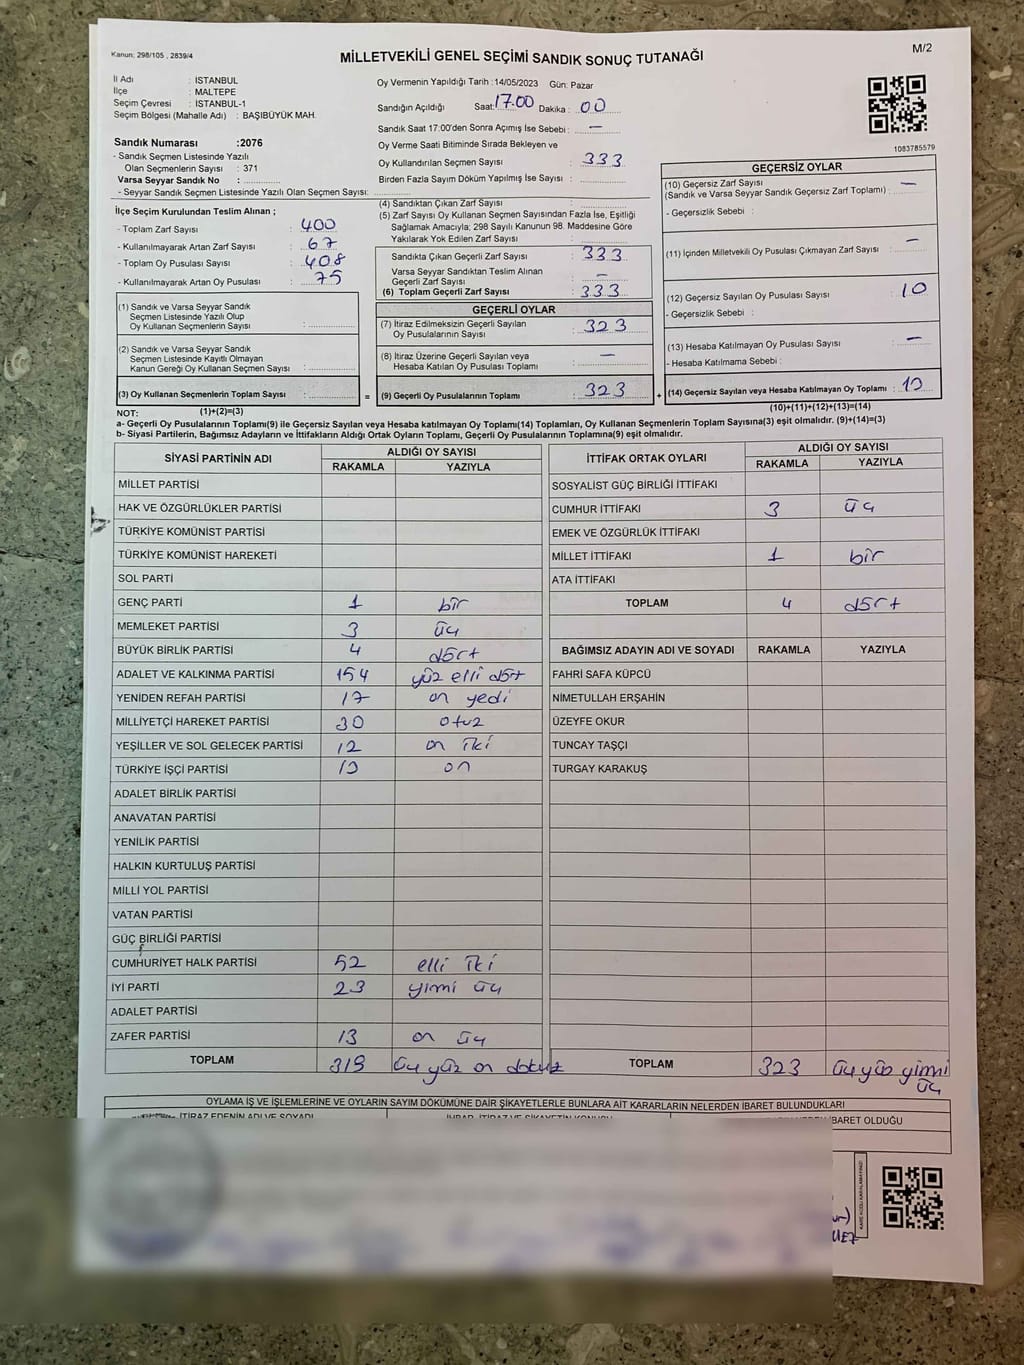 Kanun: 298/105 , 2839/4
MİLLETVEKİLİ GENEL SEÇİMİ SANDIK SONUÇ TUTANAĞI
M/2
İl Adı : İSTANBUL
İlçe : MALTEPE
Seçim Çevresi : İSTANBUL-1
Seçim Bölgesi (Mahalle Adı) : BAŞIBÜYÜK MAH.
Oy Vermenin Yapıldığı Tarih : 14/05/2023 Gün: Pazar
Sandığın Açıldığı Saat: 17.00 Dakika : 00
Sandık Saat 17:00'den Sonra Açımış İse Sebebi : —
Oy Verme Saati Bitiminde Sırada Bekleyen ve
Oy Kullandırılan Seçmen Sayısı : 333
Birden Fazla Sayım Döküm Yapılmış İse Sayısı :
1083785579
Sandık Numarası :2076
- Sandık Seçmen Listesinde Yazılı
Olan Seçmenlerin Sayısı : 371
Varsa Seyyar Sandık No :
- Seyyar Sandık Seçmen Listesinde Yazılı Olan Seçmen Sayısı:
İlçe Seçim Kurulundan Teslim Alınan ;
- Toplam Zarf Sayısı : 400
- Kullanılmayarak Artan Zarf Sayısı : 67
- Toplam Oy Pusulası Sayısı : 408
- Kullanılmayarak Artan Oy Pusulası : 75
(1) Sandık ve Varsa Seyyar Sandık
Seçmen Listesinde Yazılı Olup
Oy Kullanan Seçmenlerin Sayısı :
(2) Sandık ve Varsa Seyyar Sandık
Seçmen Listesinde Kayıtlı Olmayan
Kanun Gereği Oy Kullanan Seçmen Sayısı :
(3) Oy Kullanan Seçmenlerin Toplam Sayısı : =
(4) Sandıktan Çıkan Zarf Sayısı :
(5) Zarf Sayısı Oy Kullanan Seçmen Sayısından Fazla İse, Eşitliği
Sağlamak Amacıyla; 298 Sayılı Kanunun 98. Maddesine Göre
Yakılarak Yok Edilen Zarf Sayısı :
Sandıkta Çıkan Geçerli Zarf Sayısı : 333
Varsa Seyyar Sandıktan Teslim Alınan
Geçerli Zarf Sayısı : —
(6) Toplam Geçerli Zarf Sayısı : 333
GEÇERLİ OYLAR
(7) İtiraz Edilmeksizin Geçerli Sayılan
Oy Pusulalarının Sayısı : 323
(8) İtiraz Üzerine Geçerli Sayılan veya
Hesaba Katılan Oy Pusulası Toplamı : —
(9) Geçerli Oy Pusulalarının Toplamı : 323 +
GEÇERSİZ OYLAR
(10) Geçersiz Zarf Sayısı
(Sandık ve Varsa Seyyar Sandık Geçersiz Zarf Toplamı) : —
- Geçersizlik Sebebi :
(11) İçinden Milletvekili Oy Pusulası Çıkmayan Zarf Sayısı : —
(12) Geçersiz Sayılan Oy Pusulası Sayısı : 10
- Geçersizlik Sebebi :
(13) Hesaba Katılmayan Oy Pusulası Sayısı : —
- Hesaba Katılmama Sebebi :
(14) Geçersiz Sayılan veya Hesaba Katılmayan Oy Toplamı : 10
NOT: (1)+(2)=(3)
(10)+(11)+(12)+(13)=(14)
a- Geçerli Oy Pusulalarının Toplamı(9) ile Geçersiz Sayılan veya Hesaba katılmayan Oy Toplamı(14) Toplamları, Oy Kullanan Seçmenlerin Toplam Sayısına(3) eşit olmalıdır. (9)+(14)=(3)
b- Siyasi Partilerin, Bağımsız Adayların ve İttifakların Aldığı Ortak Oyların Toplamı, Geçerli Oy Pusulalarının Toplamına(9) eşit olmalıdır.
SİYASİ PARTİNİN ADI ALDIĞI OY SAYISI
RAKAMLA YAZIYLA
MİLLET PARTİSİ
HAK VE ÖZGÜRLÜKLER PARTİSİ
TÜRKİYE KOMÜNİST PARTİSİ
TÜRKİYE KOMÜNİST HAREKETİ
SOL PARTİ
GENÇ PARTİ 1 bir
MEMLEKET PARTİSİ 3 üç
BÜYÜK BİRLİK PARTİSİ 4 dört
ADALET VE KALKINMA PARTİSİ 154 yüz elli dört
YENİDEN REFAH PARTİSİ 17 on yedi
MİLLİYETÇİ HAREKET PARTİSİ 30 otuz
YEŞİLLER VE SOL GELECEK PARTİSİ 12 on iki
TÜRKİYE İŞÇİ PARTİSİ 10 on
ADALET BİRLİK PARTİSİ
ANAVATAN PARTİSİ
YENİLİK PARTİSİ
HALKIN KURTULUŞ PARTİSİ
MİLLİ YOL PARTİSİ
VATAN PARTİSİ
GÜÇ BİRLİĞİ PARTİSİ
CUMHURİYET HALK PARTİSİ 52 elli iki
İYİ PARTİ 23 yimi üç
ADALET PARTİSİ
ZAFER PARTİSİ 13 on üç
TOPLAM 319 üç yüz on dokuz
İTTİFAK ORTAK OYLARI ALDIĞI OY SAYISI
RAKAMLA YAZIYLA
SOSYALİST GÜÇ BİRLİĞİ İTTİFAKI
CUMHUR İTTİFAKI 3 üç
EMEK VE ÖZGÜRLÜK İTTİFAKI
MİLLET İTTİFAKI 1 bir
ATA İTTİFAKI
TOPLAM 4 dört
BAĞIMSIZ ADAYIN ADI VE SOYADI RAKAMLA YAZIYLA
FAHRİ SAFA KÜPCÜ
NİMETULLAH ERŞAHİN
ÜZEYFE OKUR
TUNCAY TAŞÇI
TURGAY KARAKUŞ
TOPLAM 323 üç yüz yimi
üç
OYLAMA İŞ VE İŞLEMLERİNE VE OYLARIN SAYIM DÖKÜMÜNE DAİR ŞİKAYETLERLE BUNLARA AİT KARARLARIN NELERDEN İBARET BULUNDUKLARI
İTİRAZ EDENİN ADI VE SOYADI
İBARET OLDUĞU